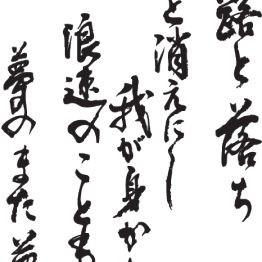 露と落ち
と消えにし
我が身か
浪速のことも
夢のまた